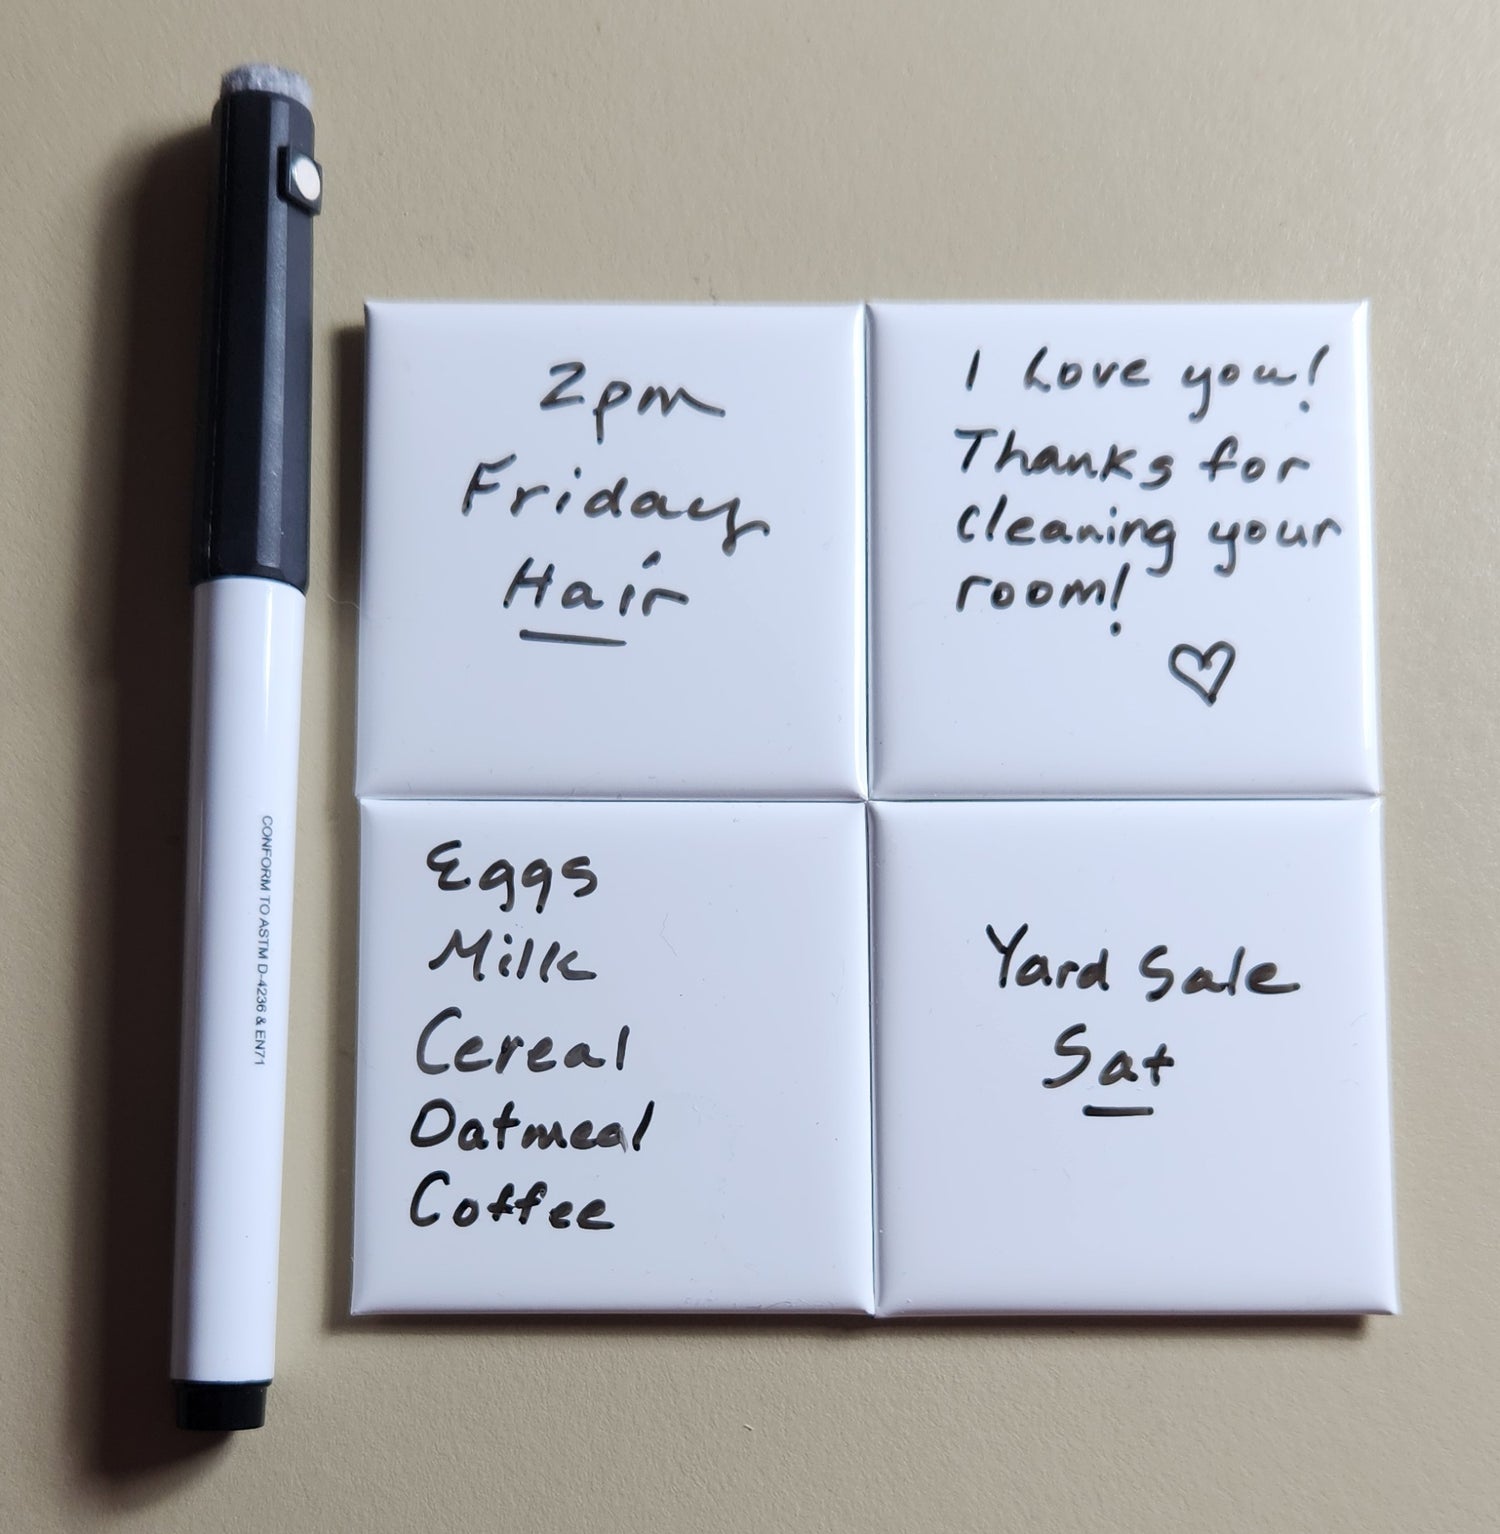 CONFORM TO ASTM D-4236 & EN71
2pm
Friday
Hair
I Love you!
Thanks for
cleaning your
room!
Eggs
Milk
Cereal
Oatmeal
Coffee
Yard Sale
Sat